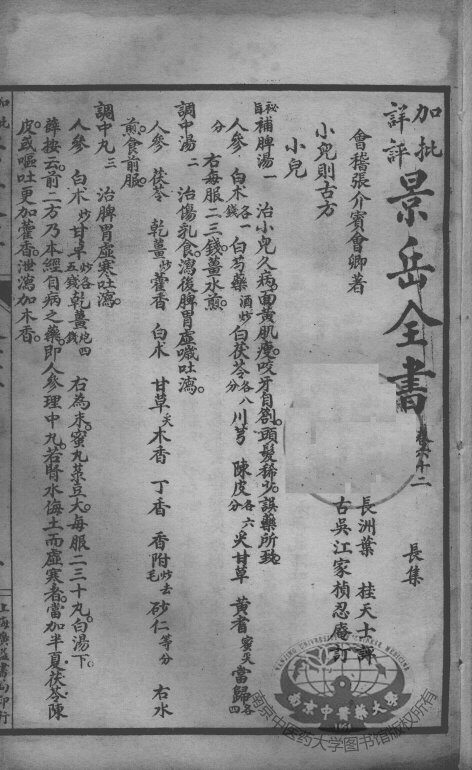 加批
詳評
景岳全書
卷六十二
長集
會稽張介賓會卿著
長洲葉 桂天士評
古吳江家楨忍庵訂
小兒則古方
小兒
秘旨補脾湯一 治小兒久病面黃肌瘦咬牙目劄頭髮稀少誤藥所致
人參 白朮各一錢 白芍藥酒炒 白茯苓各八分 川芎 陳皮各六分 炙甘草 黃耆蜜炙 當歸各四分
右每服二三錢薑水煎
調中湯二 治傷乳食瀉後脾胃虛嘁吐瀉
人參 茯苓 乾薑炒 藿香 白朮 甘草炙 木香 丁香 香附炒去毛 砂仁等分 右水
煎食前服
調中丸三 治脾胃虛寒吐瀉
人參 白朮炒 甘草炒各五錢 乾薑炮四錢 右為末蜜丸菉豆大每服二三十丸白湯下
薛按云前二方乃本經自病之藥即人參理中丸若腎水侮土而虛寒者當加半夏茯苓陳
皮或嘔吐更加藿香泄瀉加木香
加批
上海廣益書局印行
南京中醫藥大學
南京中医药大学图书馆版权所有